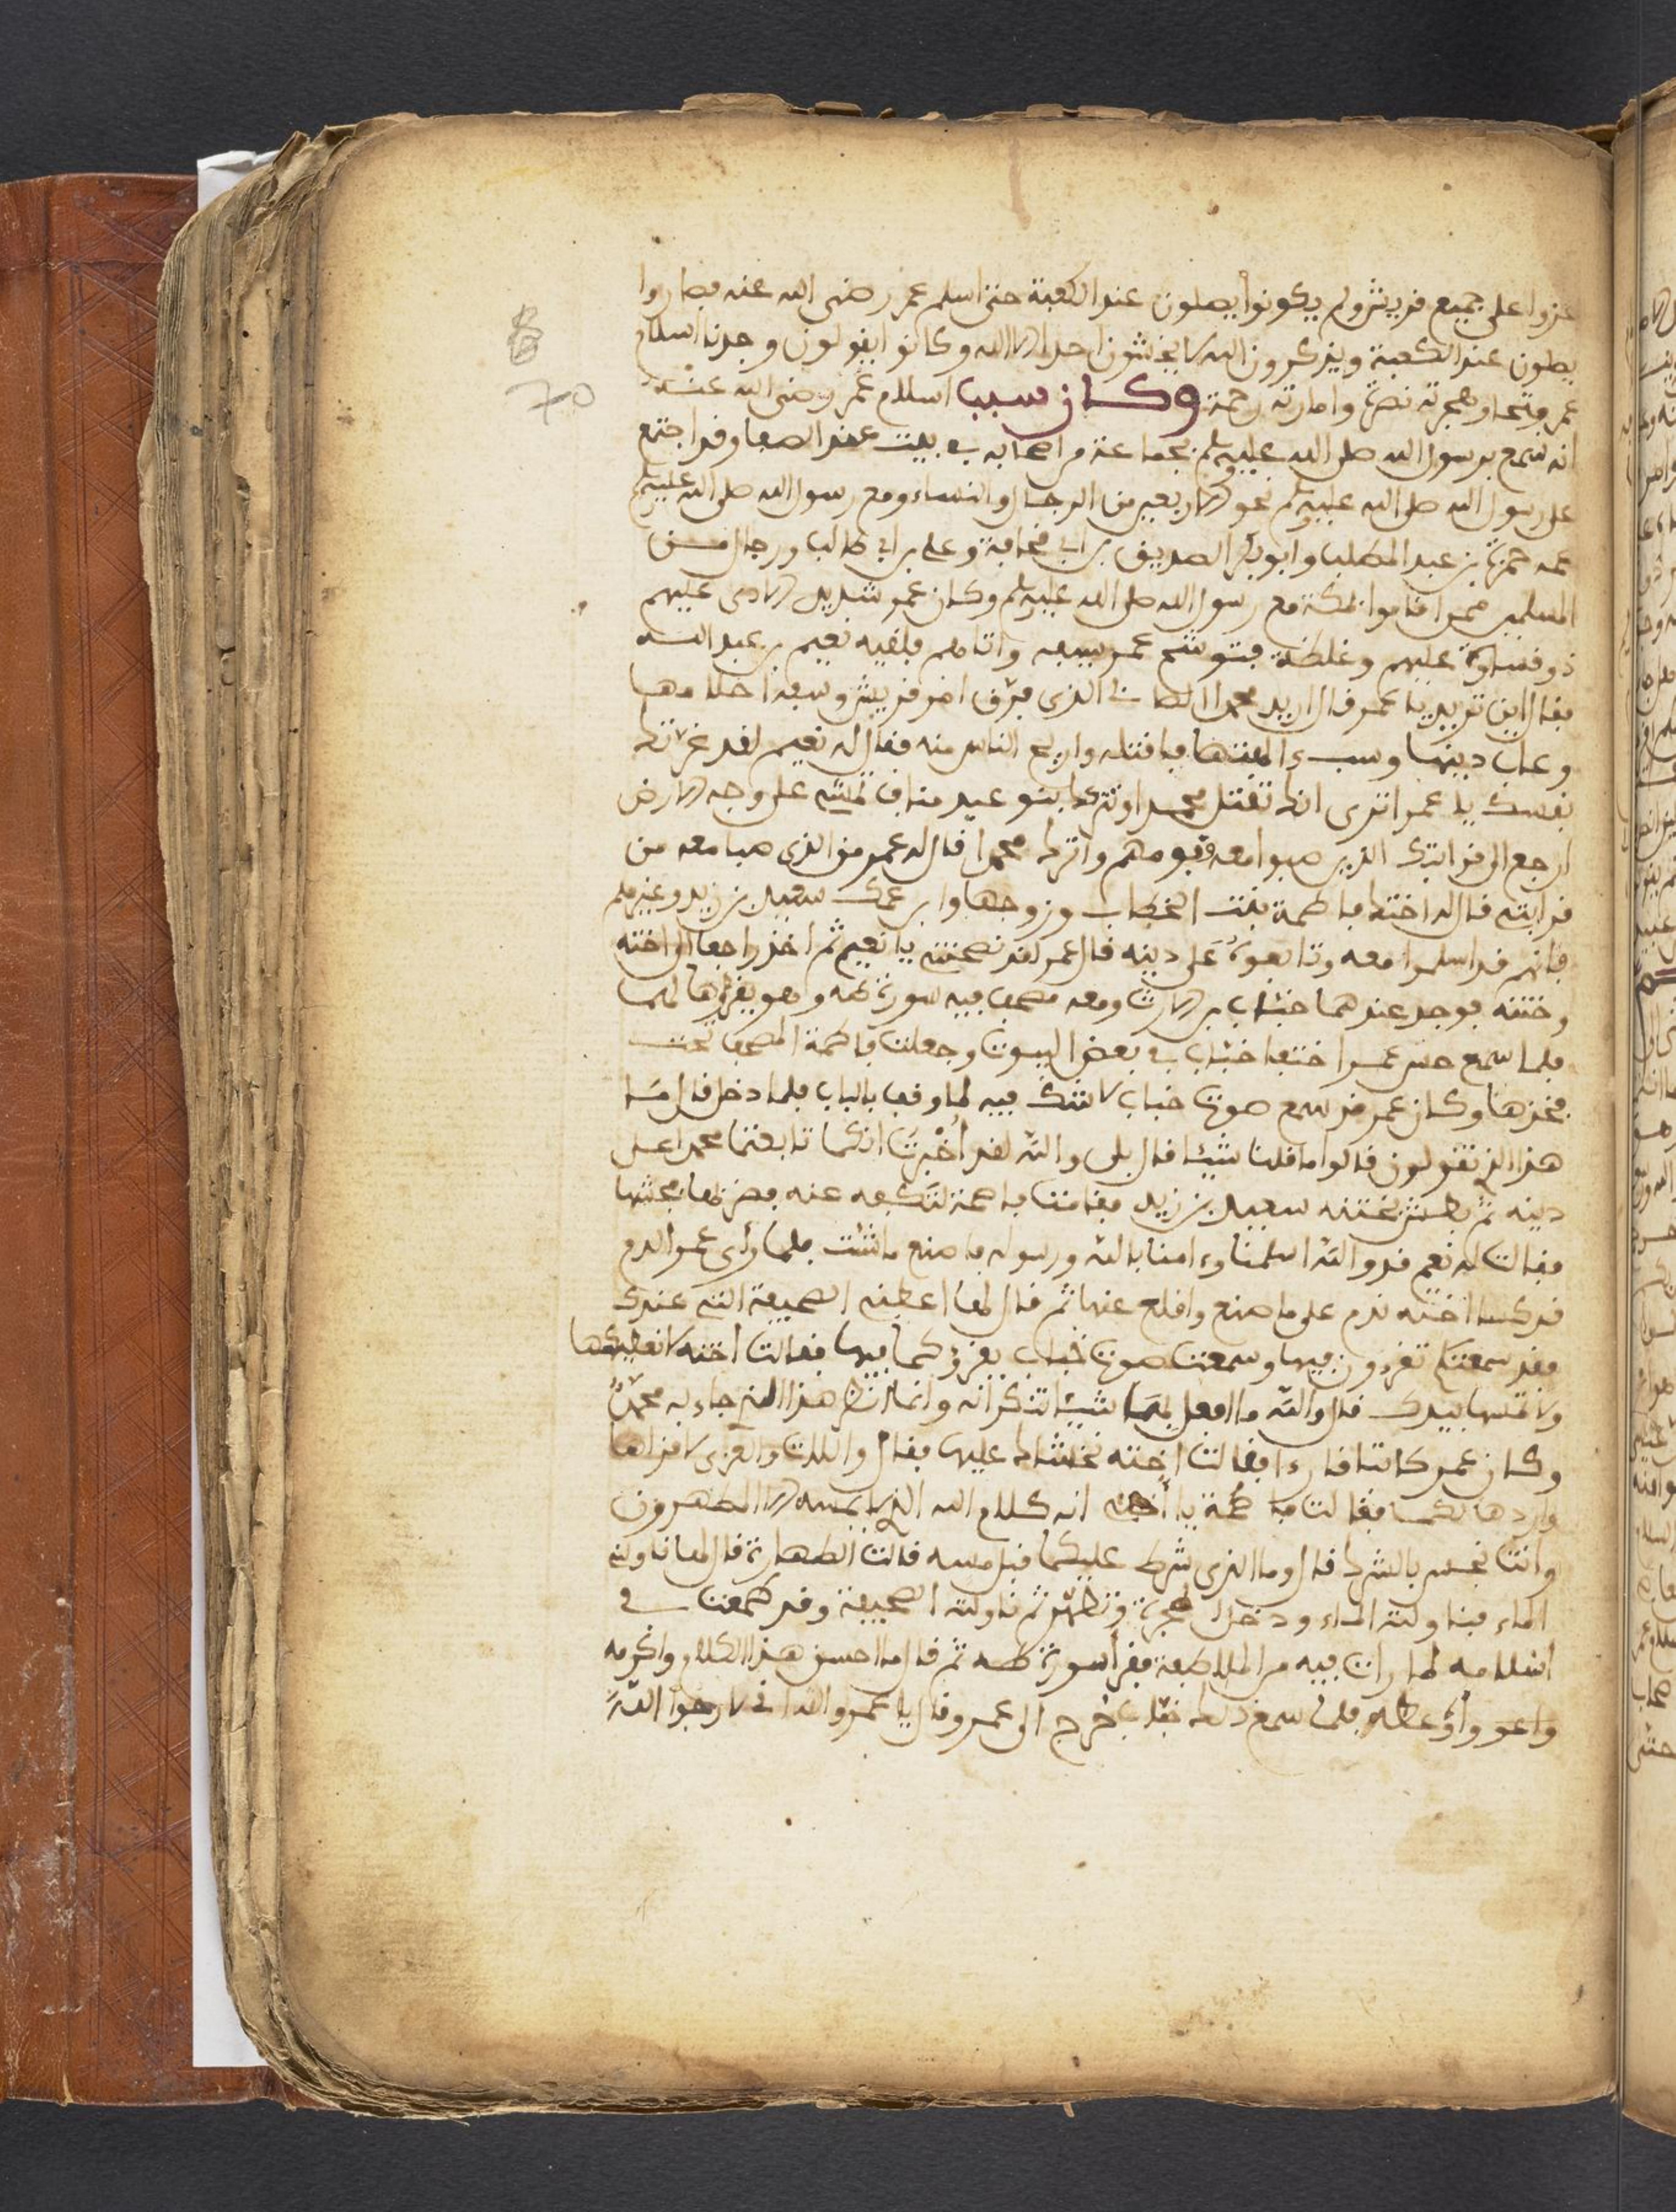 عزوا على جميع قريش ولم يكونوا يصلون عند الكعبة حتى اسلم عمر رضي الله عنه فصاروا
يصلون عند الكعبة ويذكرون الله لا يخشون احدا الا الله وكانو ايقولون وجدنا اسلام
عمر فتحا وهجرته نصرة وامارته رحمة وكان سبب اسلام عمر رضي الله عنه
70
انه سمع برسول الله صلى الله عليه وسلم بجماعة من اصحابه في بيت عند الصفا وقد اجتمع
على رسول الله صلى الله عليه وسلم نحو الاربعين من الرجال والنساء ومع رسول الله صلى الله عليه وسلم
عمه حمزة بن عبد المطلب وابو بكر الصديق بن ابي قحافة وعلي بن ابي طالب ورجال من
المسلمين ممن اقاموا بمكة مع رسول الله صلى الله عليه وسلم وكان عمر شديد الاذى عليهم
ذو قساوة عليهم وغلظة فتوشح عمر سيفه واتاهم فلقيه نعيم بن عبد الله
فقال اين تريد يا عمر قال اريد محمدا الصابي الذي فرق امر قريش وسفه احلامها
وعاب دينها وسب ءالهتها فاقتله واريح الناس منه فقال له نعيم لقد غرتك
نفسك يا عمر اترى انك تقتل محمدا وتتركك بنو عبد مناف تمشي على وجه الارض
ارجع الى قرابتك الذين صبوا معه وقومهم واترك محمدا قال له عمر من الذي صبا معه من
قرابتي قال له اختك فاطمة بنت الخطاب وزوجها وابن عمك سعيد بن زيد وغيرهم
فانهم قد اسلموا معه وتابعوه على دينه قال عمر لقد نصحتني يا نعيم ثم اخذ راجعا الى اخته
وختنه فوجد عندهما خباب بن الارت ومعه مصحف فيه سورة طه وهو يقرؤها لهما
فلما سمع حس عمر اختفا خباب في بعض البيوت وجعلت فاطمة المصحف تحت
فخذها وكان عمر قد سمع صوت خباب لا شك فيه لما وقف بالباب فلما دخل قال ما
هذا الذي تقولون قالوا ما قلنا شيئا قال بلى والله لقد أُخْبِرتُ انكما تابعتما محمدا على
دينه ثم بطش بختنه سعيد بن زيد فقامت فاطمة لتكفه عنه فضربها فشجها
فقالت له نعم قد والله اسلمنا وءامنا بالله ورسوله فاصنع ما شئت فلما رأى عمر الدم
قد كسا اخته ندم على ما صنع واقلع عنها ثم قال لها اعطني الصحيفة التي عندك
فقد سمعتكم تقرءون فيها وسمعت صوت خباب يقرؤكما فيها فقالت اخته لا نعطيكها
ولا تمسها بيدك قال والله ما افعل بها شيئا تذكرانه وانما انظر هذا الذي جاء به محمدٌ
وكان عمر كاتبا قارءا فقالت اخته نخشاك عليها فقال واللات والعزى لا قراها
واردها لكما فقالت فاطمة يا أخي انه كلام الله الذي لا يمسه الا المطهرون
وانت نجس بالشرك قال وما الذي شرط عليكما قبل مسه قالت الطهارة قال لها ناوليني
الماء فناولته الماء ودخل الحجرة وتطهر ثم ناولته الصحيفة وقد طمعت في
اسلامه لما رات فيه من الملاطفة فقرأ سورة طه ثم قال ما احسن هذا الكلام واكرمه
واعز وأوعظه فلما سمع ذلك خباب خرج الى عمر وقال يا عمر والله اني لارجوا اللهَ